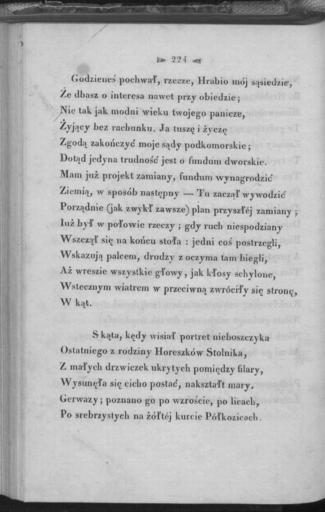 224
Godzieneś pochwał, rzecze, Hrabio mój sąsiedzie,
Że dbasz o interesa nawet przy obiedzie;
Nie tak jak modni wieku twojego panicze,
Żyjący bez rachunku. Ja tuszę i życzę
Zgodą zakończyć moje sądy podkomorskie;
Dotąd jedyna trudność jest o fundum dworskie.
Mam już projekt zamiany, fundum wynagrodzić
Ziemią, w sposób następny — Tu zaczął wywodzić
Porządnie (jak zwykł zawsze) plan przyszłéj zamiany ;
Iuż był w połowie rzeczy ; gdy ruch niespodziany
Wszczął się na końcu stoła : jedni coś postrzegli,
Wskazują palcem, drudzy z oczyma tam biegli,
Aż wreszcie wszystkie głowy, jak kłosy schylone,
Wstecznym wiatrem w przeciwną zwróciły się stronę,
W kąt.
S kąta, kędy wisiał portret nieboszczyka
Ostatniego z rodziny Horeszków Stolnika,
Z małych drzwiczek ukrytych pomiędzy filary,
Wysunęła się cicho postać, nakształt mary.
Gerwazy; poznano go po wzroście, po licach,
Po srebrzystych na żółtéj kurcie Półkozicach.